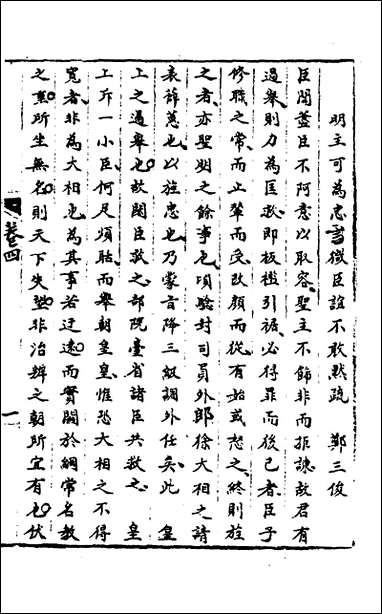 明主可為忠言微臣誼不敢默疏　鄭三俊
臣聞藎臣不阿意以取容聖主不飾非而拒諫故君有
過舉則力為匡救即板檻引裾必得罪而後已者臣子
修職之常而止輦而受改顏而從有始或怒之終則旌
之者亦聖明之餘事也頃驗封司員外郎徐大相之請
表薛蕙也以旌忠也乃蒙旨降三級調外任矣此　皇
上之過舉也故閣臣救之部院臺省諸臣共救之　皇
上斥一小臣何足煩聒而舉朝皇皇惟恐大相之不得
寬者非為大相也為其事若迂遠而實關於綱常名教
之重所坐無名則天下失望非治辨之朝所宜有也伏
卷四
一